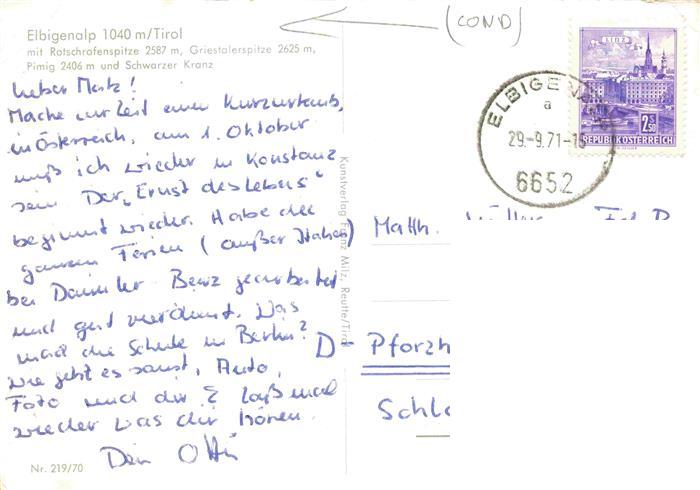 Elbigenalp 1040 m/Tirol
mit Rotschrofenspitze 2587 m, Griestalerspitze 2625 m,
Pimig 2406 m und Schwarzer Kranz
(COND)
LINZ
2.50
REPUBLIK ÖSTERREICH
ELBIGENALP
a
29.-9.71-15
6652
Lieber Matz!
Mache zur Zeit einen Kurzurlaub,
in Österreich, am 1. Oktober
muß ich wieder in Konstanz
sein Der "Ernst des Lebens"
beginnt wieder. Habe die
ganzen Ferien (außer Italien)
bei Daimler Benz gearbeitet
und gut verdient. Was
macht die Schule in Berlin?
Wie geht es sonst, Auto,
Foto und dir? Laß mal
wieder was dir hören.
Dein Otti
Nr. 219/70
Kunstverlag Franz Milz, Reutte/Tirol
Matth.
D- Pforzh
Schlo